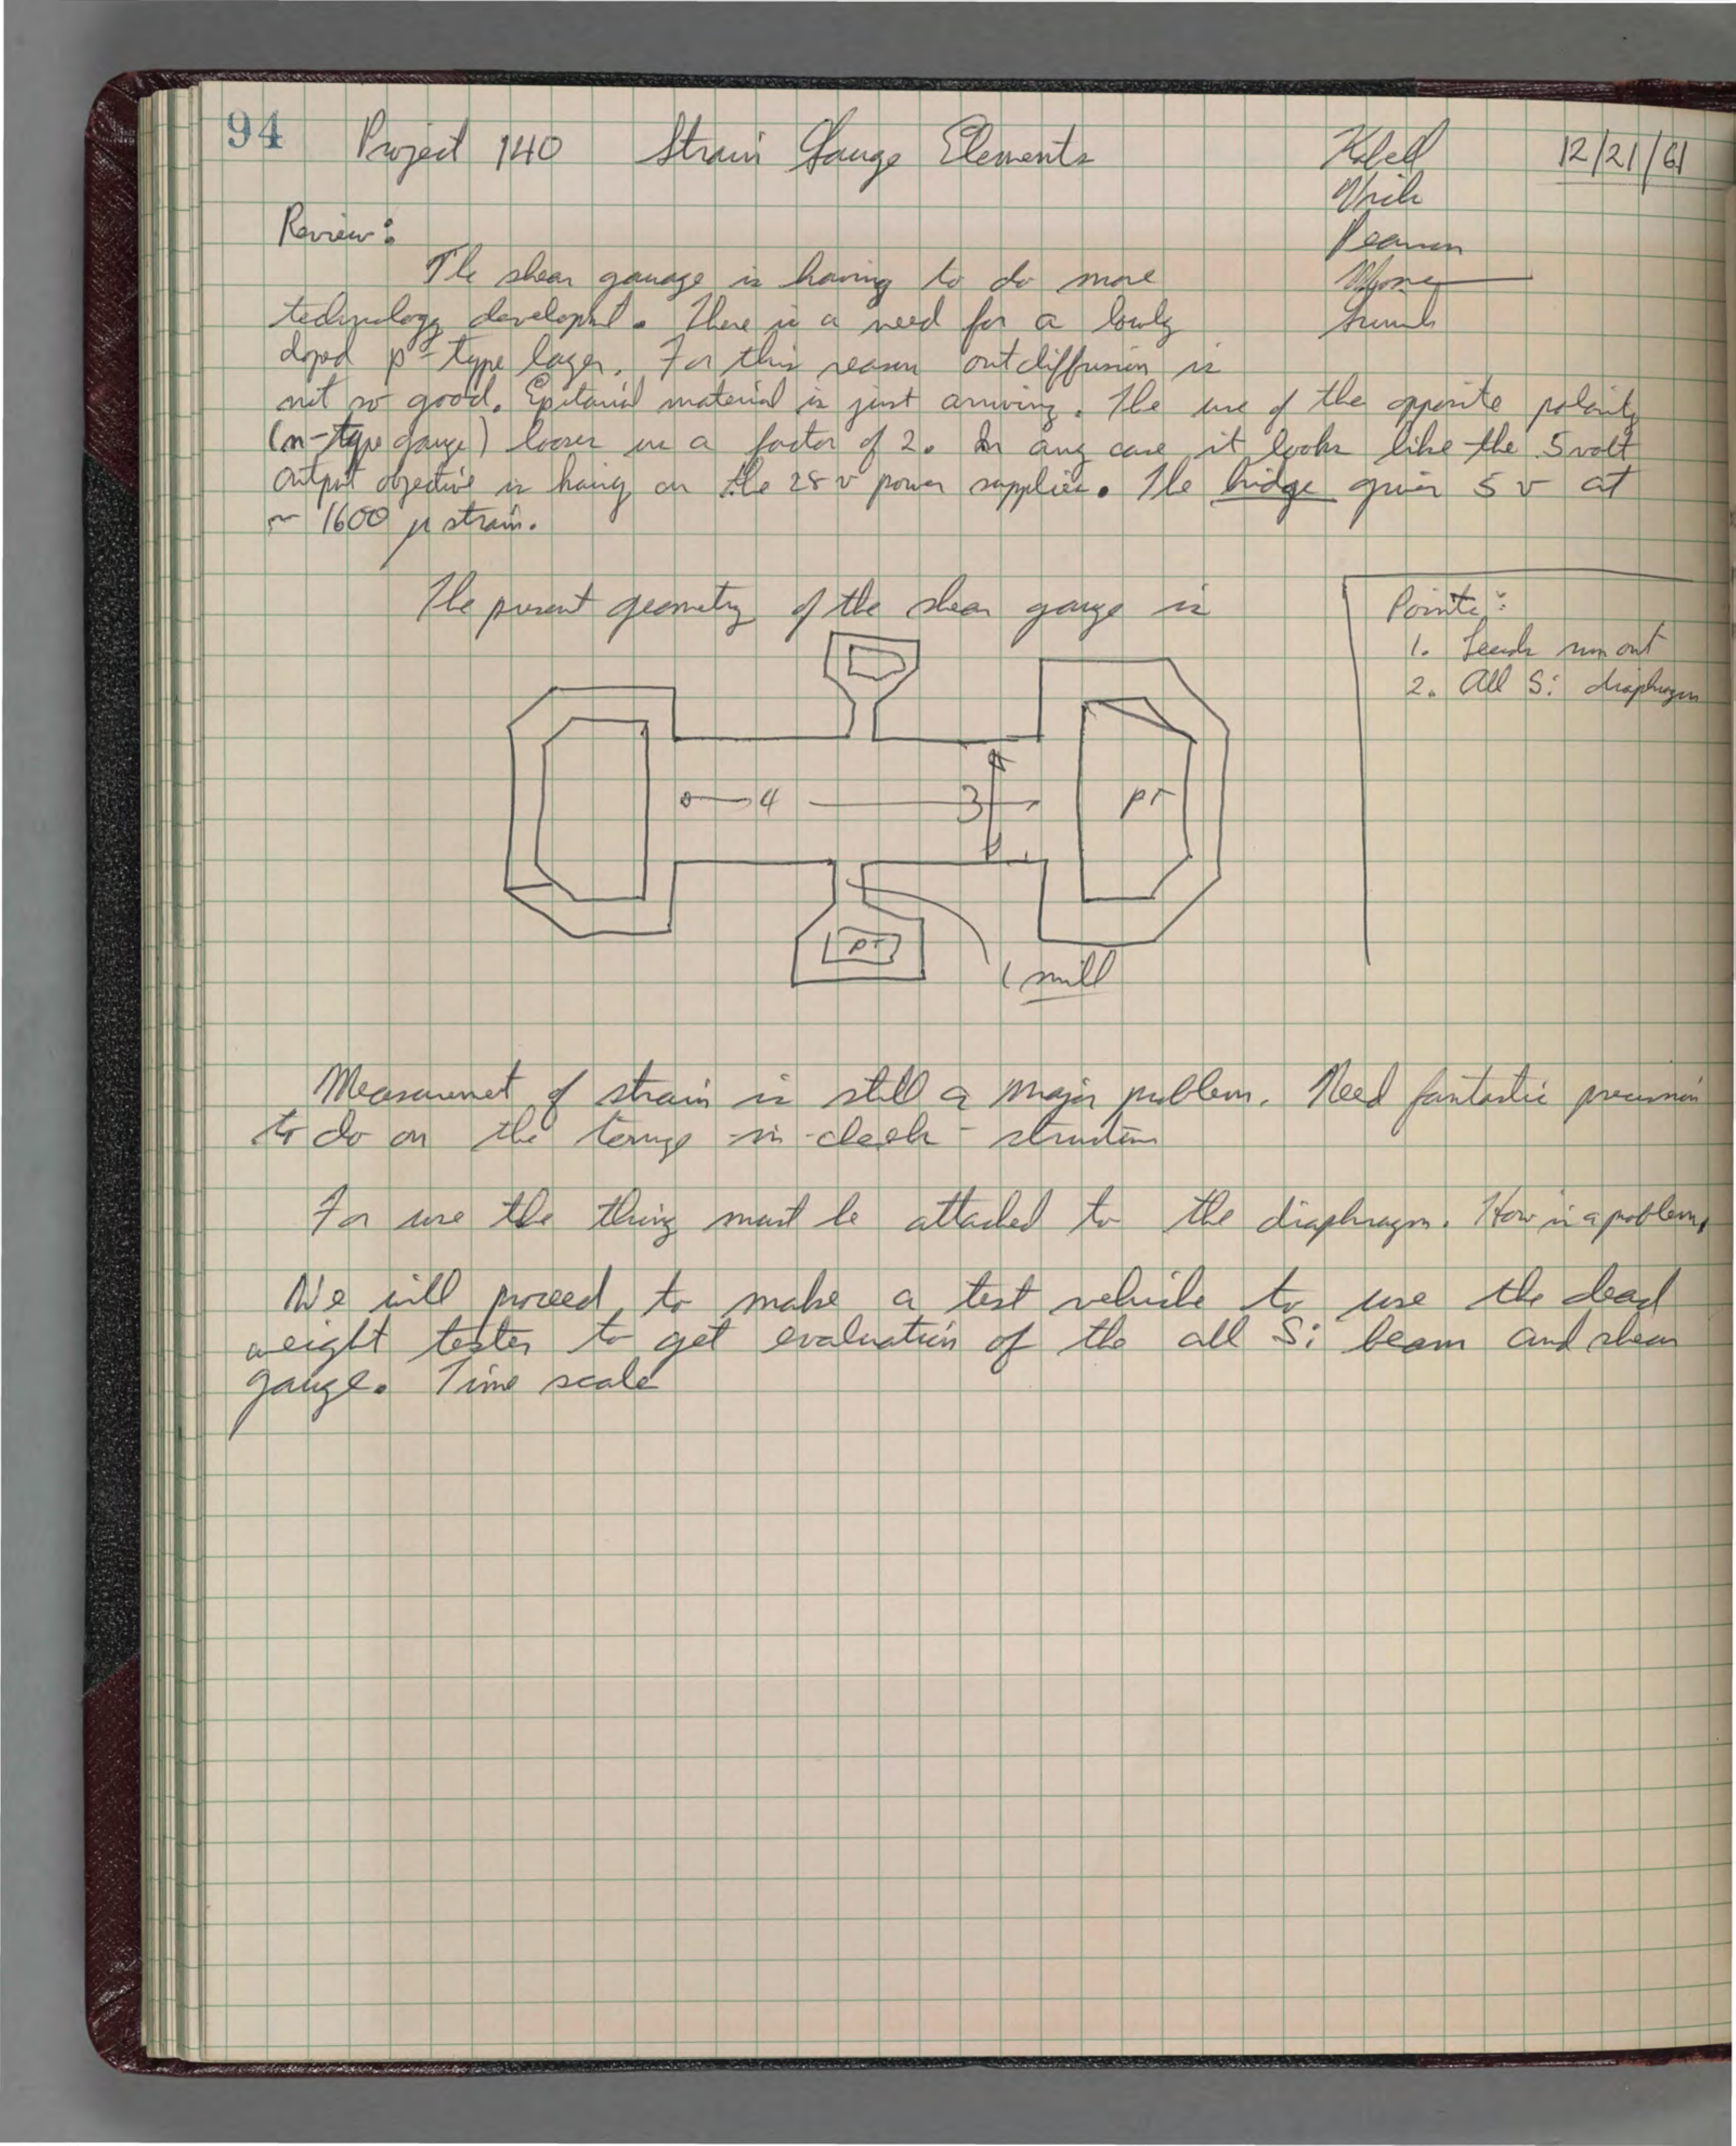 94 Project 140 Strain Gauge Elements 12/21/61
Review:
The shear gauage is having to do more
technology developmt. There is a need for a lowly
doped p-type layer. For this reason outdiffusion is
not so good. Epitaxial material is just arriving. The use of the opposite polarity
(n-type gauge) looses us a factor of 2. In any case it looks like the 5 volt
output objective is on the 28 v power supplies. The bridge gives 5 v at
~ 1600 μ strain.
The present geometry of the shear gauge is
Points:
1. Leads run out
2. All Si diaphragm
4 3 pt
pt
1 mill
Measurement of strain is still a major problem. Need fantastic precision
to do on the structure
For use the thing must be attached to the diaphragm. How is a problem.
We will proceed to make a test vehicle to use the dead
weight tester to get evaluation of the all Si beam and shear
gauge. Time scale